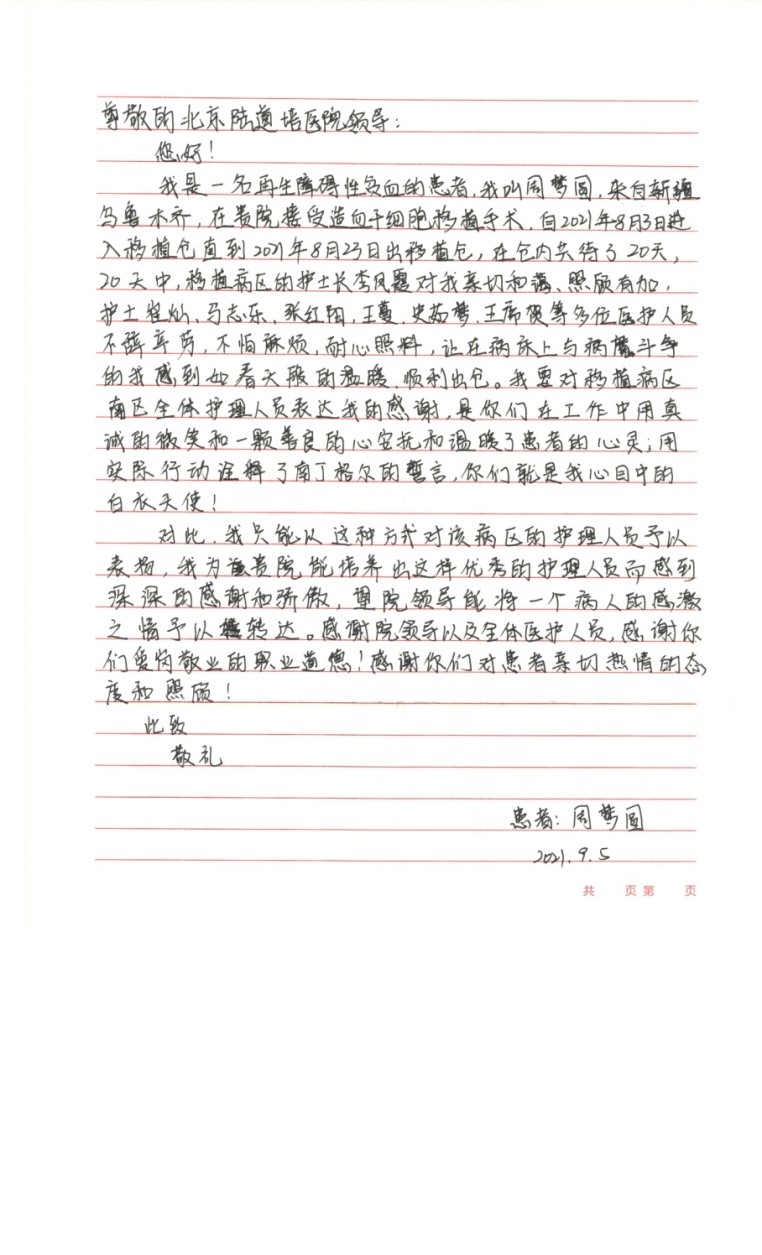 尊敬的北京陆道培医院领导：
您好！
我是一名再生障碍性贫血的患者，我叫周梦圆，来自新疆
乌鲁木齐，在贵院接受造血干细胞移植手术，自2021年8月3日进
入移植仓直到2021年8月23日出移植仓，在仓内共待了20天，
20天中，移植病区的护士长李凤霞对我亲切和蔼、照顾有加，
护士崔灿、马志乐、张红阳、王蔓、史茹梦、王席贺等多位医护人员
不辞辛劳，不怕麻烦，耐心照料，让在病床上与病魔斗争
的我感到如春天般的温暖，顺利出仓。我要对移植病区
南区全体护理人员表达我的感谢，是你们在工作中用真
诚的微笑和一颗善良的心安抚和温暖了患者的心灵；用
实际行动诠释了南丁格尔的誓言，你们就是我心目中的
白衣天使！
对此，我只能以这种方式对该病区的护理人员予以
表扬，我为贵院能培养出这样优秀的护理人员而感到
深深的感谢和骄傲，望院领导能将一个病人的感激
之情予以转达。感谢院领导以及全体医护人员，感谢你
们爱岗敬业的职业道德！感谢你们对患者亲切热情的态
度和照顾！
此致
敬礼
患者：周梦圆
2021.9.5
共 页第 页